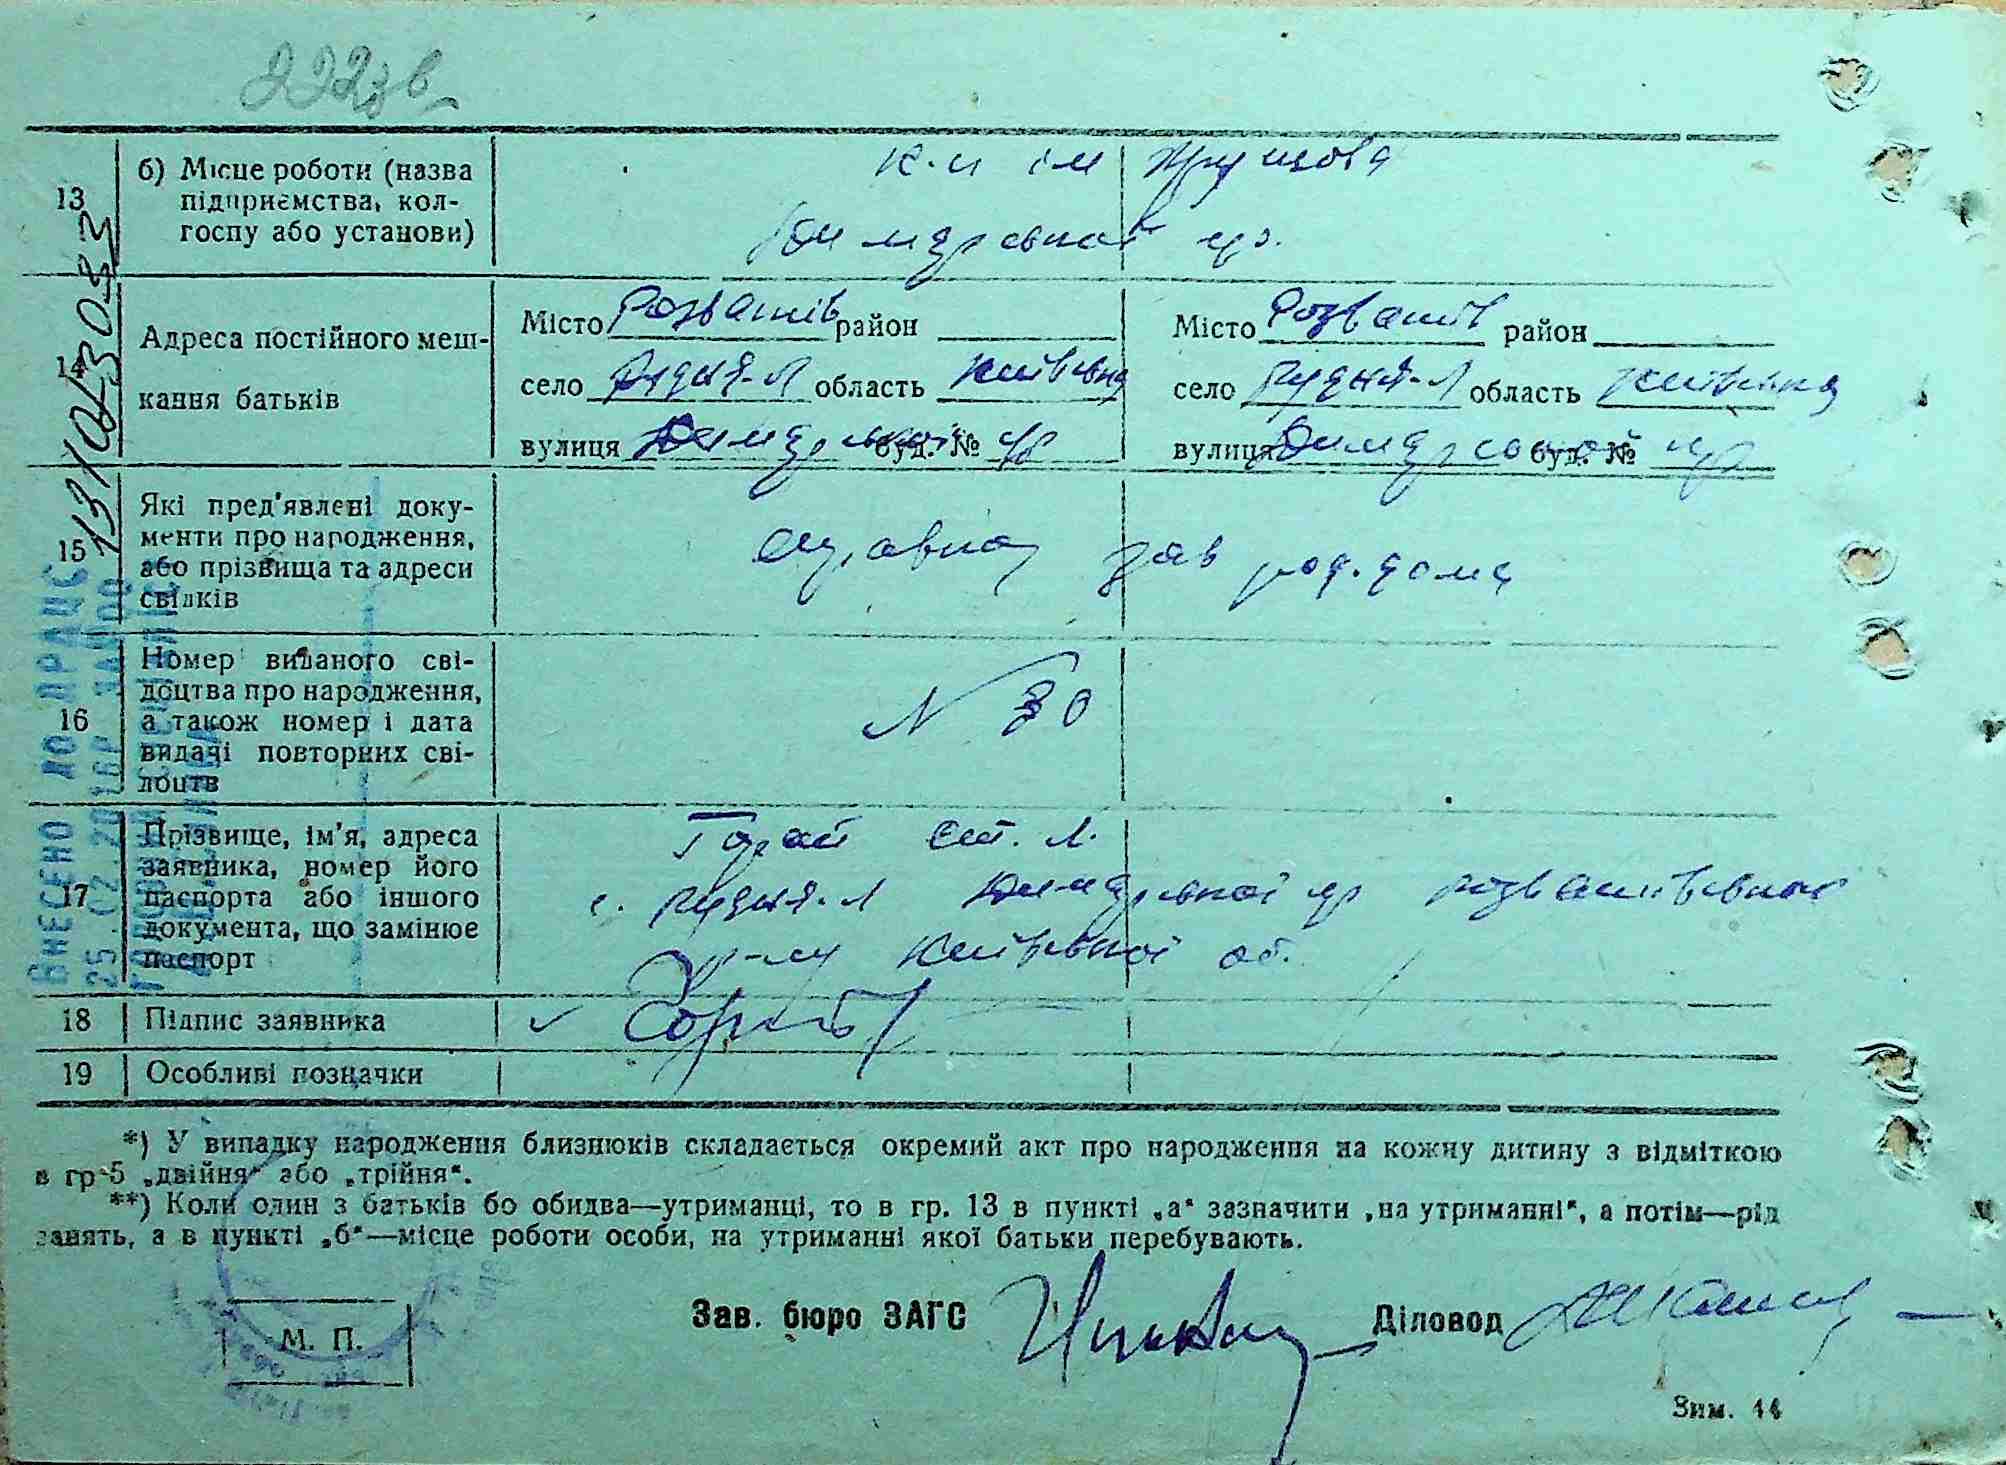 222зв
13 б) Місце роботи (назва підприємства, колгоспу або установи)
к-п ім Хрущова
Димерської
14 Адреса постійного мешкання батьків
Місто Розважів район
село Рудня-Л область Київська
вулиця Димерської буд. №
Місто Розважів район
село Рудня-Л область Київська
вулиця Димерської буд. №
15 Які пред'явлені документи про народження, або прізвища та адреси свідків
справка зав род.дома
16 Номер виданого свідоцтва про народження, а також номер і дата видачі повторних свідоцтв
N 30
17 Прізвище, ім'я, адреса заявника, номер його паспорта або іншого документа, що замінює паспорт
Горай Л.
с. Рудня-Л Димерської Розважівського
р-ну Київської об.
18 Підпис заявника
19 Особливі позначки
*) У випадку народження близнюків складається окремий акт про народження на кожну дитину з відміткою
в гр 5 „двійня" або „трійня".
**) Коли один з батьків бо обидва—утриманці, то в гр. 13 в пункті „а" зазначити „на утриманні", а потім—рід
занять, а в пункті „б"—місце роботи особи, на утриманні якої батьки перебувають.
Зав. бюро ЗАГС
Діловод
М. П.
Зим. 44
ВНЕСЕНО ДО ДРАЦС